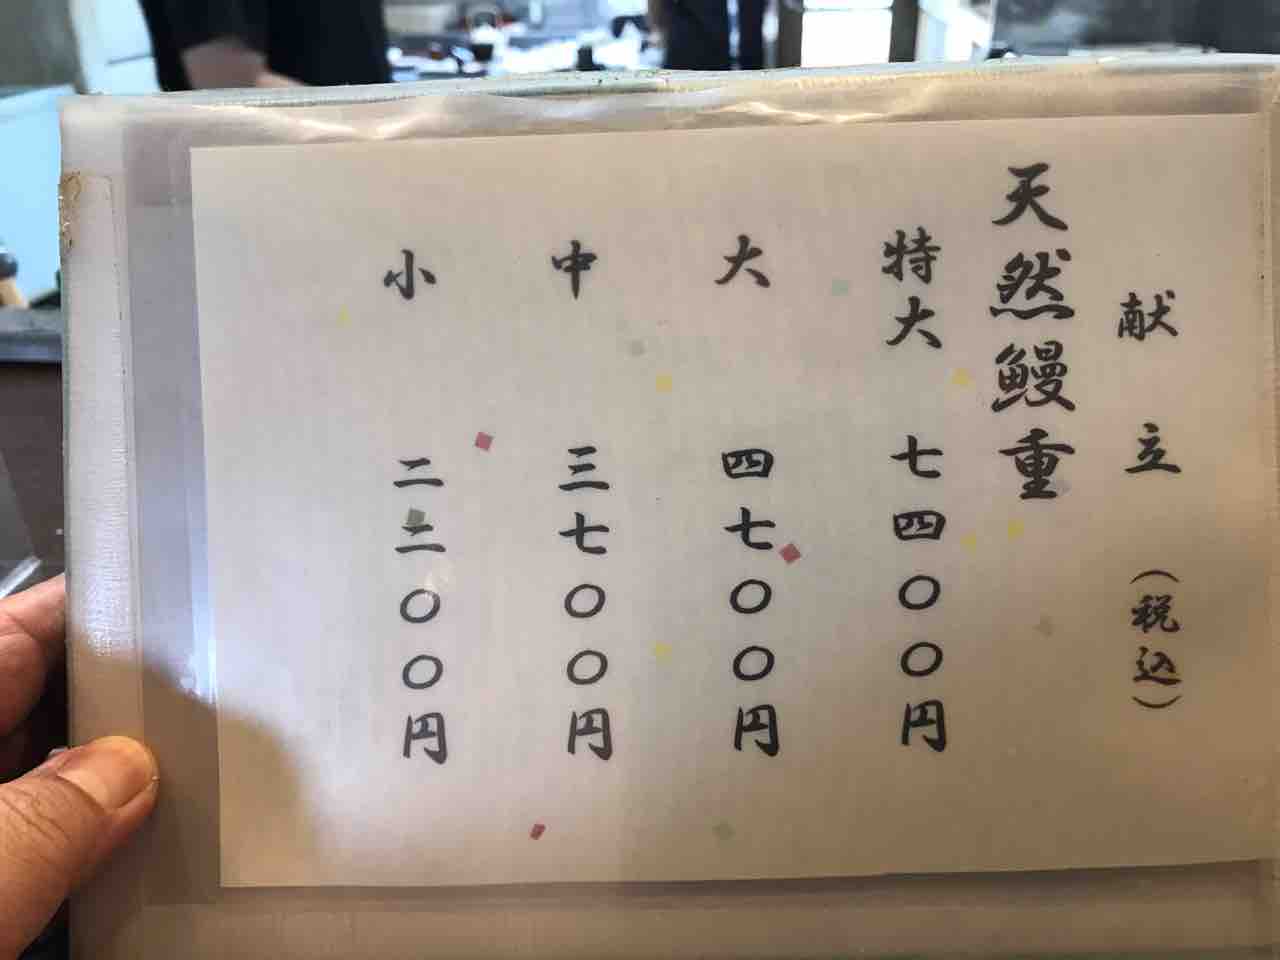 献立（税込）
天然鰻重
特大 七四〇〇円
大 四七〇〇円
中 三七〇〇円
小 二二〇〇円